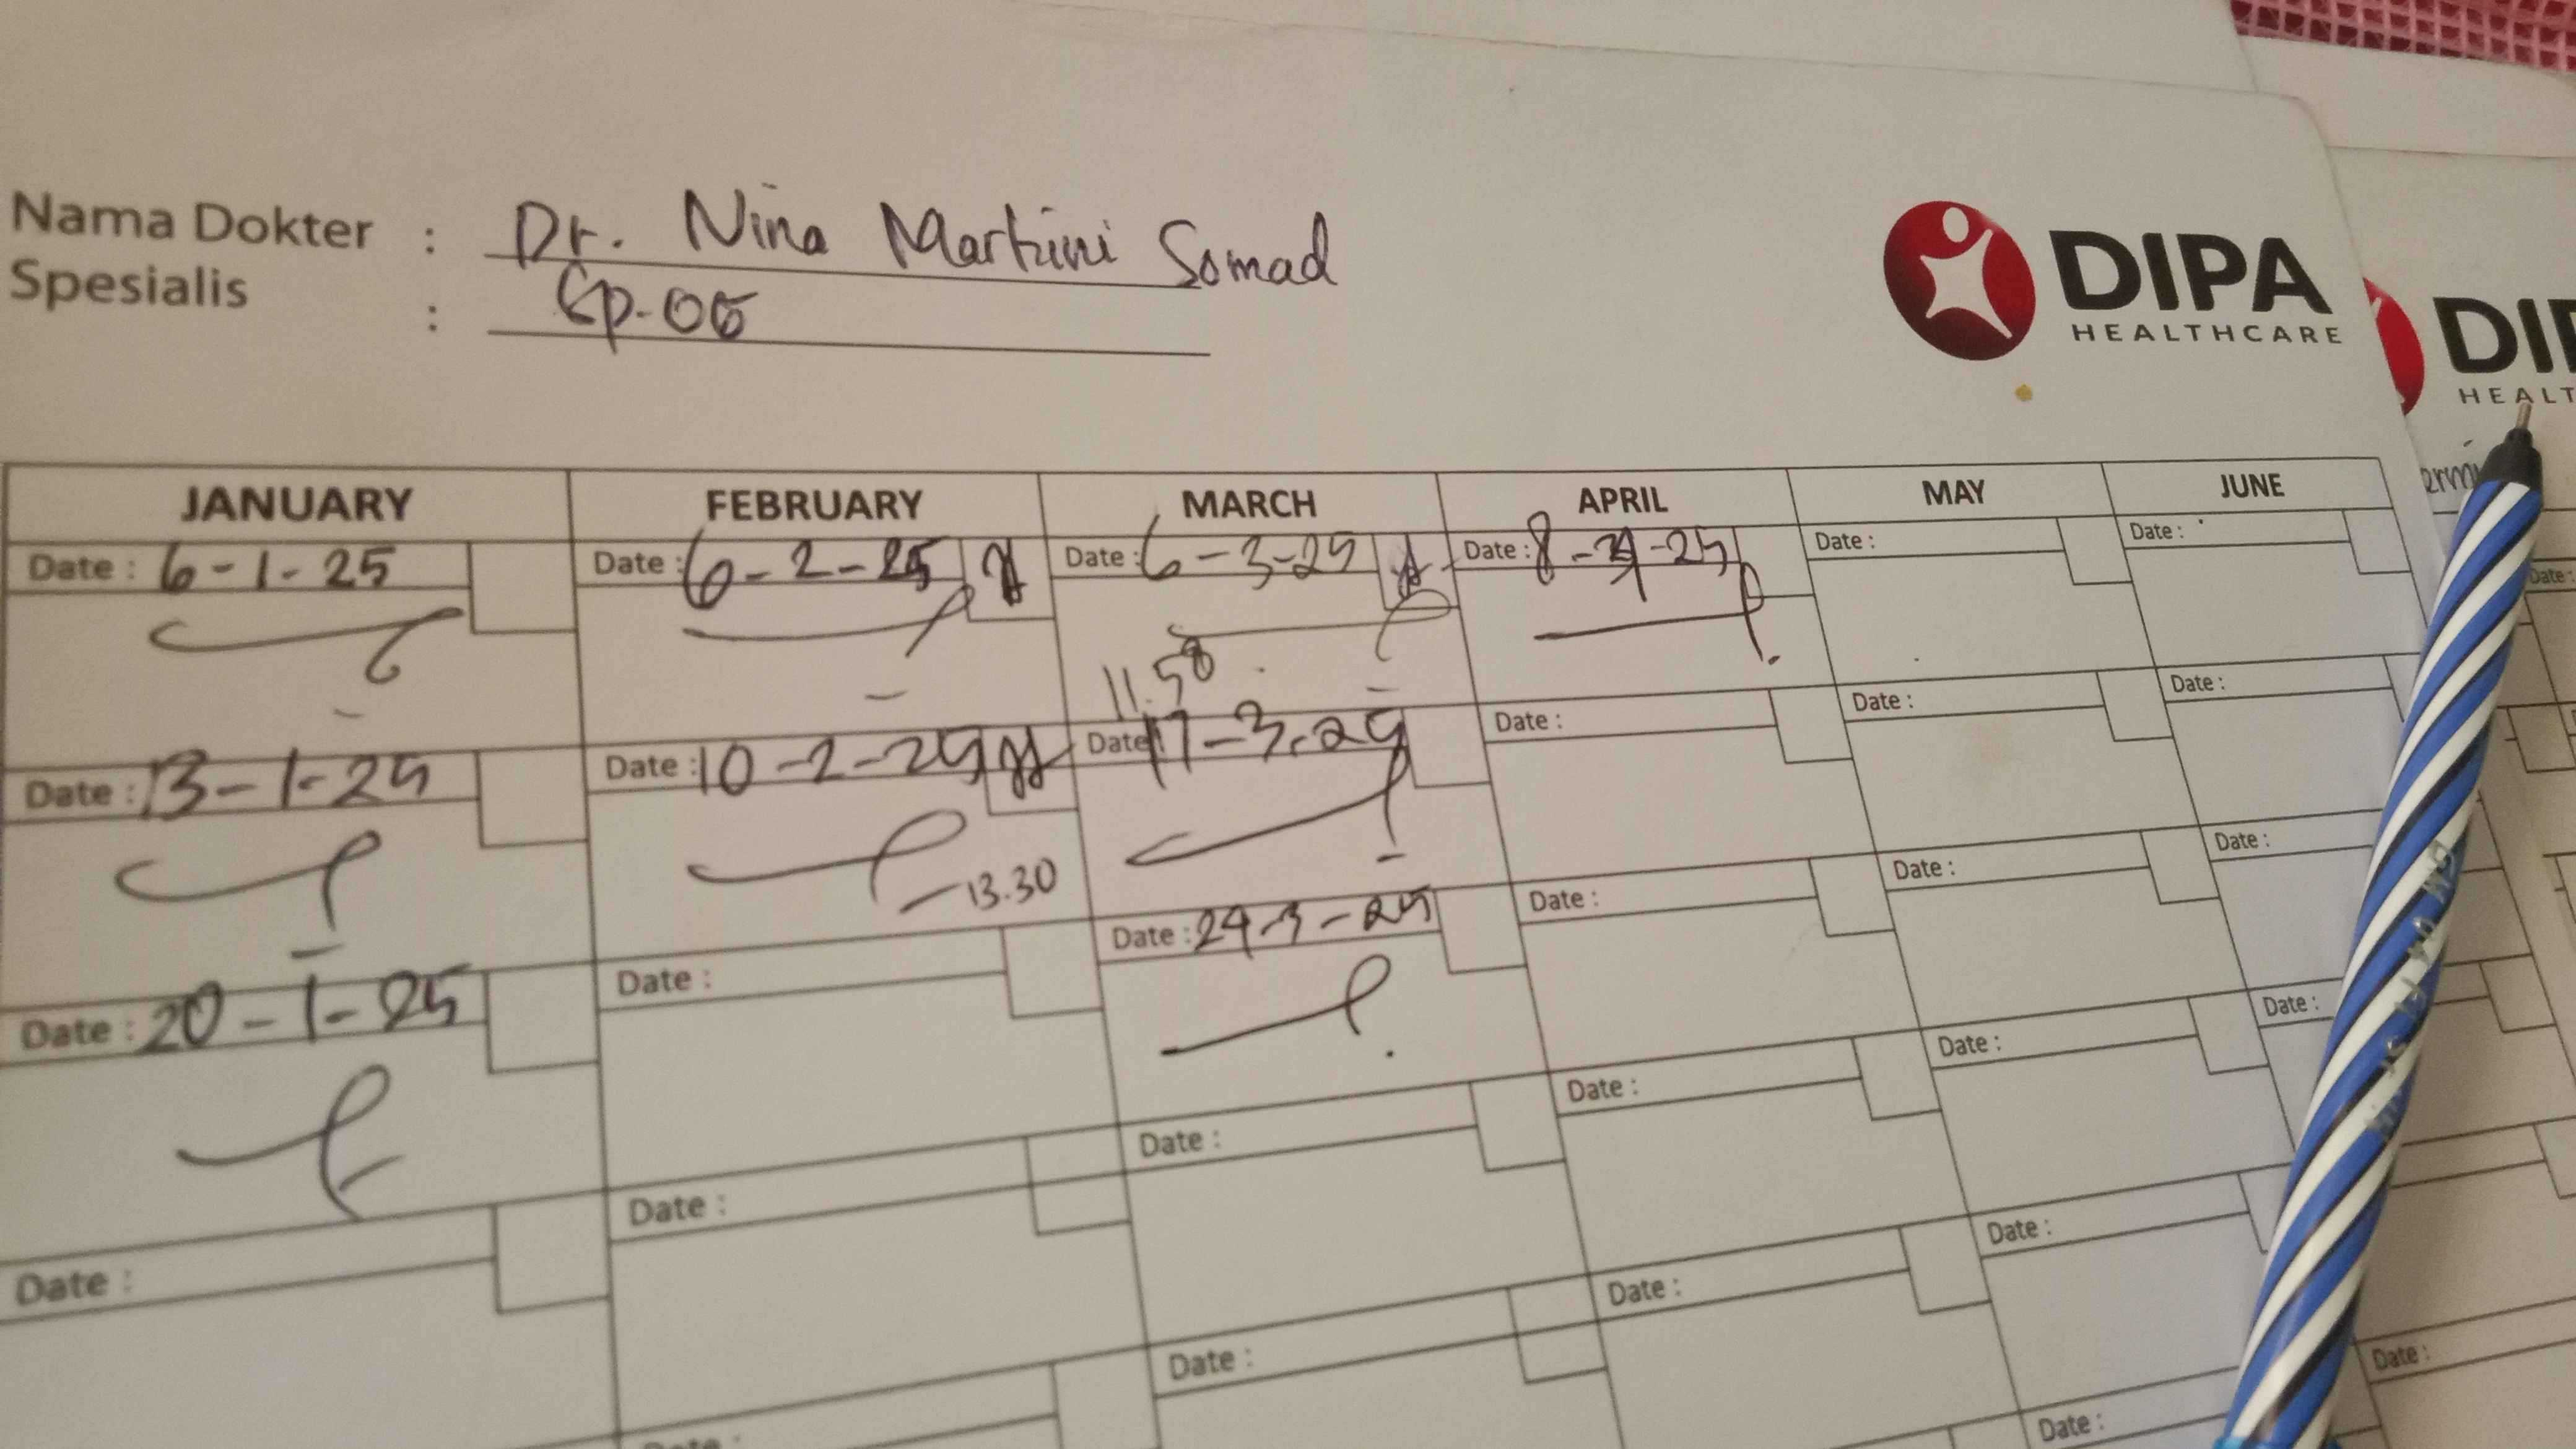 Nama Dokter : Dr. Nina Martini Somad
Spesialis : Sp-OG
DIPA
HEALTHCARE
DIP
HEALT
JANUARY FEBRUARY MARCH APRIL MAY JUNE
Date : 6-1-25 Date : 6-2-25 Date : 6-3-25 Date : 8-4-25 Date : Date : Date :
11.58
Date : 13-1-25 Date : 10-2-25 Date : 17-3-25 Date : Date : Date :
13.30
Date : 20-1-25 Date : Date : 24-3-25 Date : Date : Date :
Date : Date : Date : Date : Date : Date :
Date : Date : Date :
Date : Date :